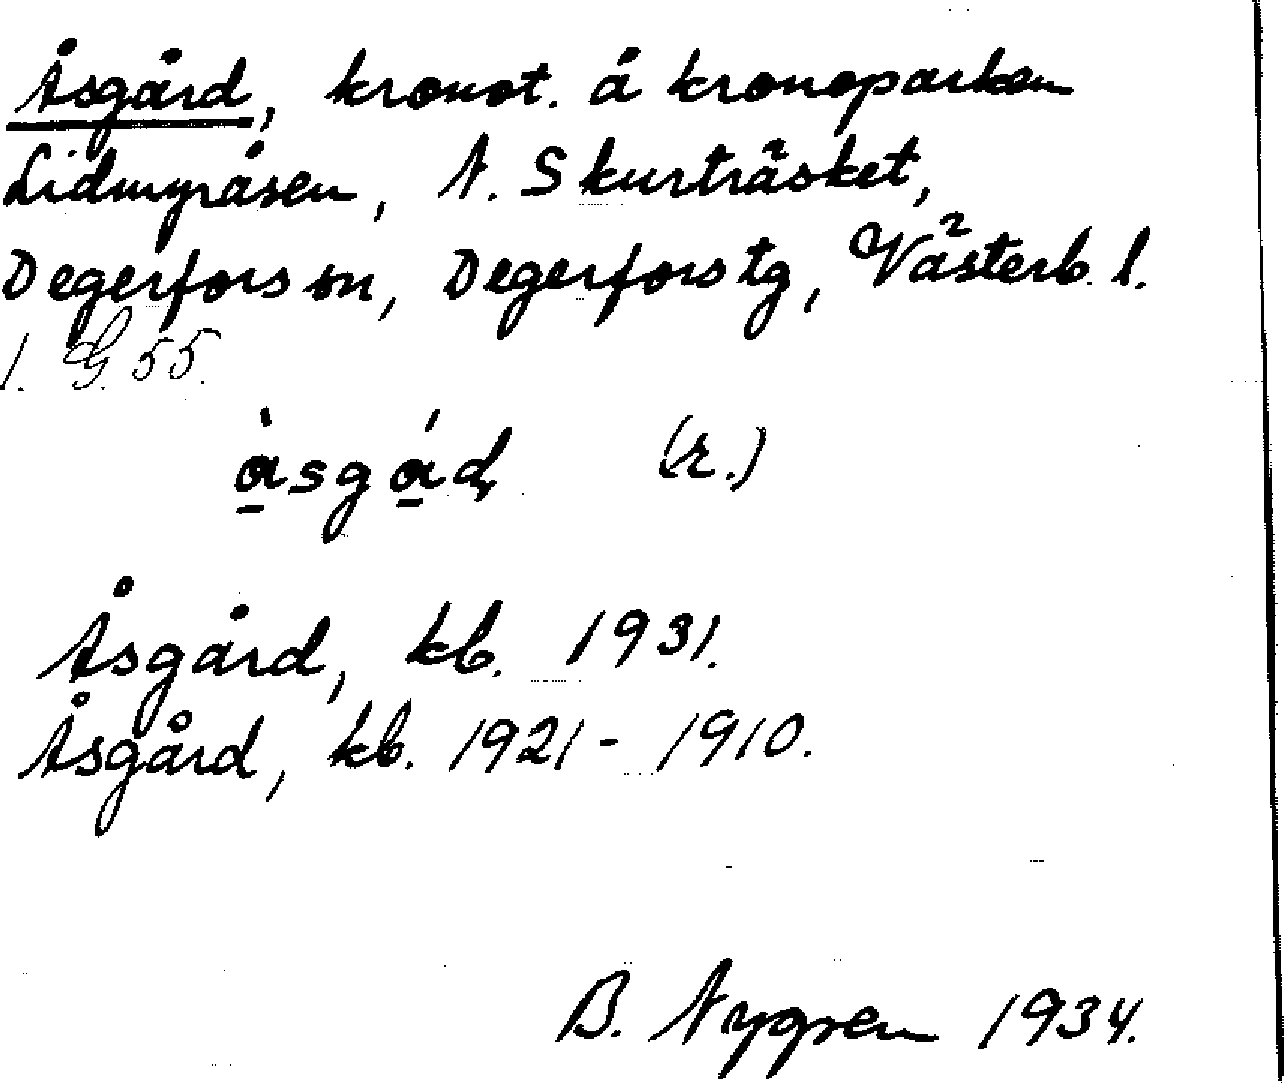 Åsgård, kronot. å kronoparken
Lidmyråsen, N. Skurträsket,
Degerfors sn, Degerfors tg, Västerb. l.
1. G. 55.
åsgåd (r.)
Åsgård, kb. 1931.
Åsgård, kb. 1921 - 1910.
B. Nygren 1934.